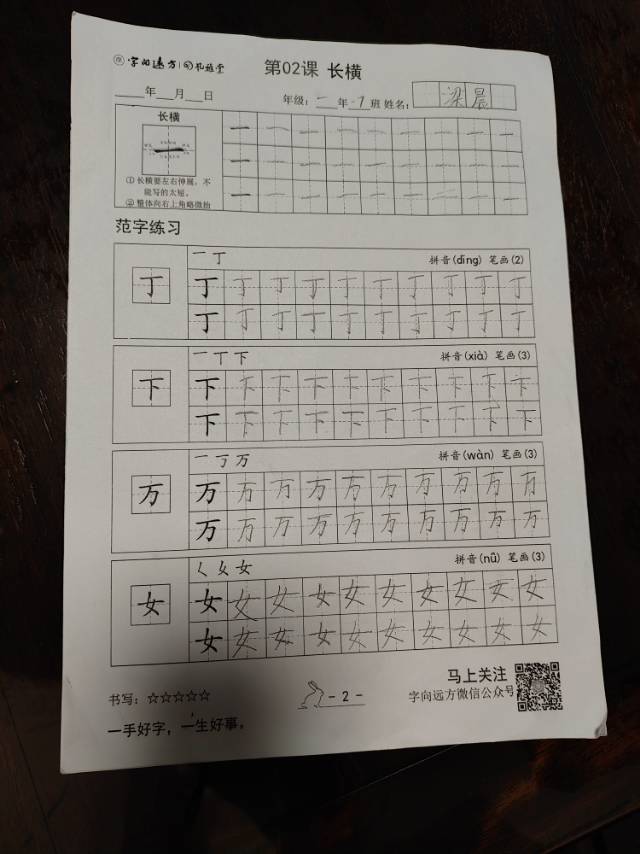 字向远方 礼诠堂
第02课 长横
____年__月__日
年级：一 年 7 班 姓名： 梁晨
长横
① 长横要左右伸展，不
能写的太短。
② 整体向右上角略微抬
一 一 一 一 一 一 一 一 一
一 一 一 一 一 一 一 一 一
一 一 一 一 一 一 一 一 一
范字练习
丁
一 丁 拼音(dīng) 笔画(2)
丁 丁 丁 丁 丁 丁 丁 丁 丁 丁
丁 丁 丁 丁 丁 丁 丁 丁 丁 丁
下
一 丅 下 拼音(xià) 笔画(3)
下 下 下 下 下 下 下 下 下 下
下 下 下 下 下 下 下 下 下 下
万
一 丁 万 拼音(wàn) 笔画(3)
万 万 万 万 万 万 万 万 万 万
万 万 万 万 万 万 万 万 万 万
女
く 女 女 拼音(nǚ) 笔画(3)
女 女 女 女 女 女 女 女 女 女
女 女 女 女 女 女 女 女 女 女
书写：☆☆☆☆☆
- 2 -
马上关注
字向远方微信公众号
一手好字，一生好事。